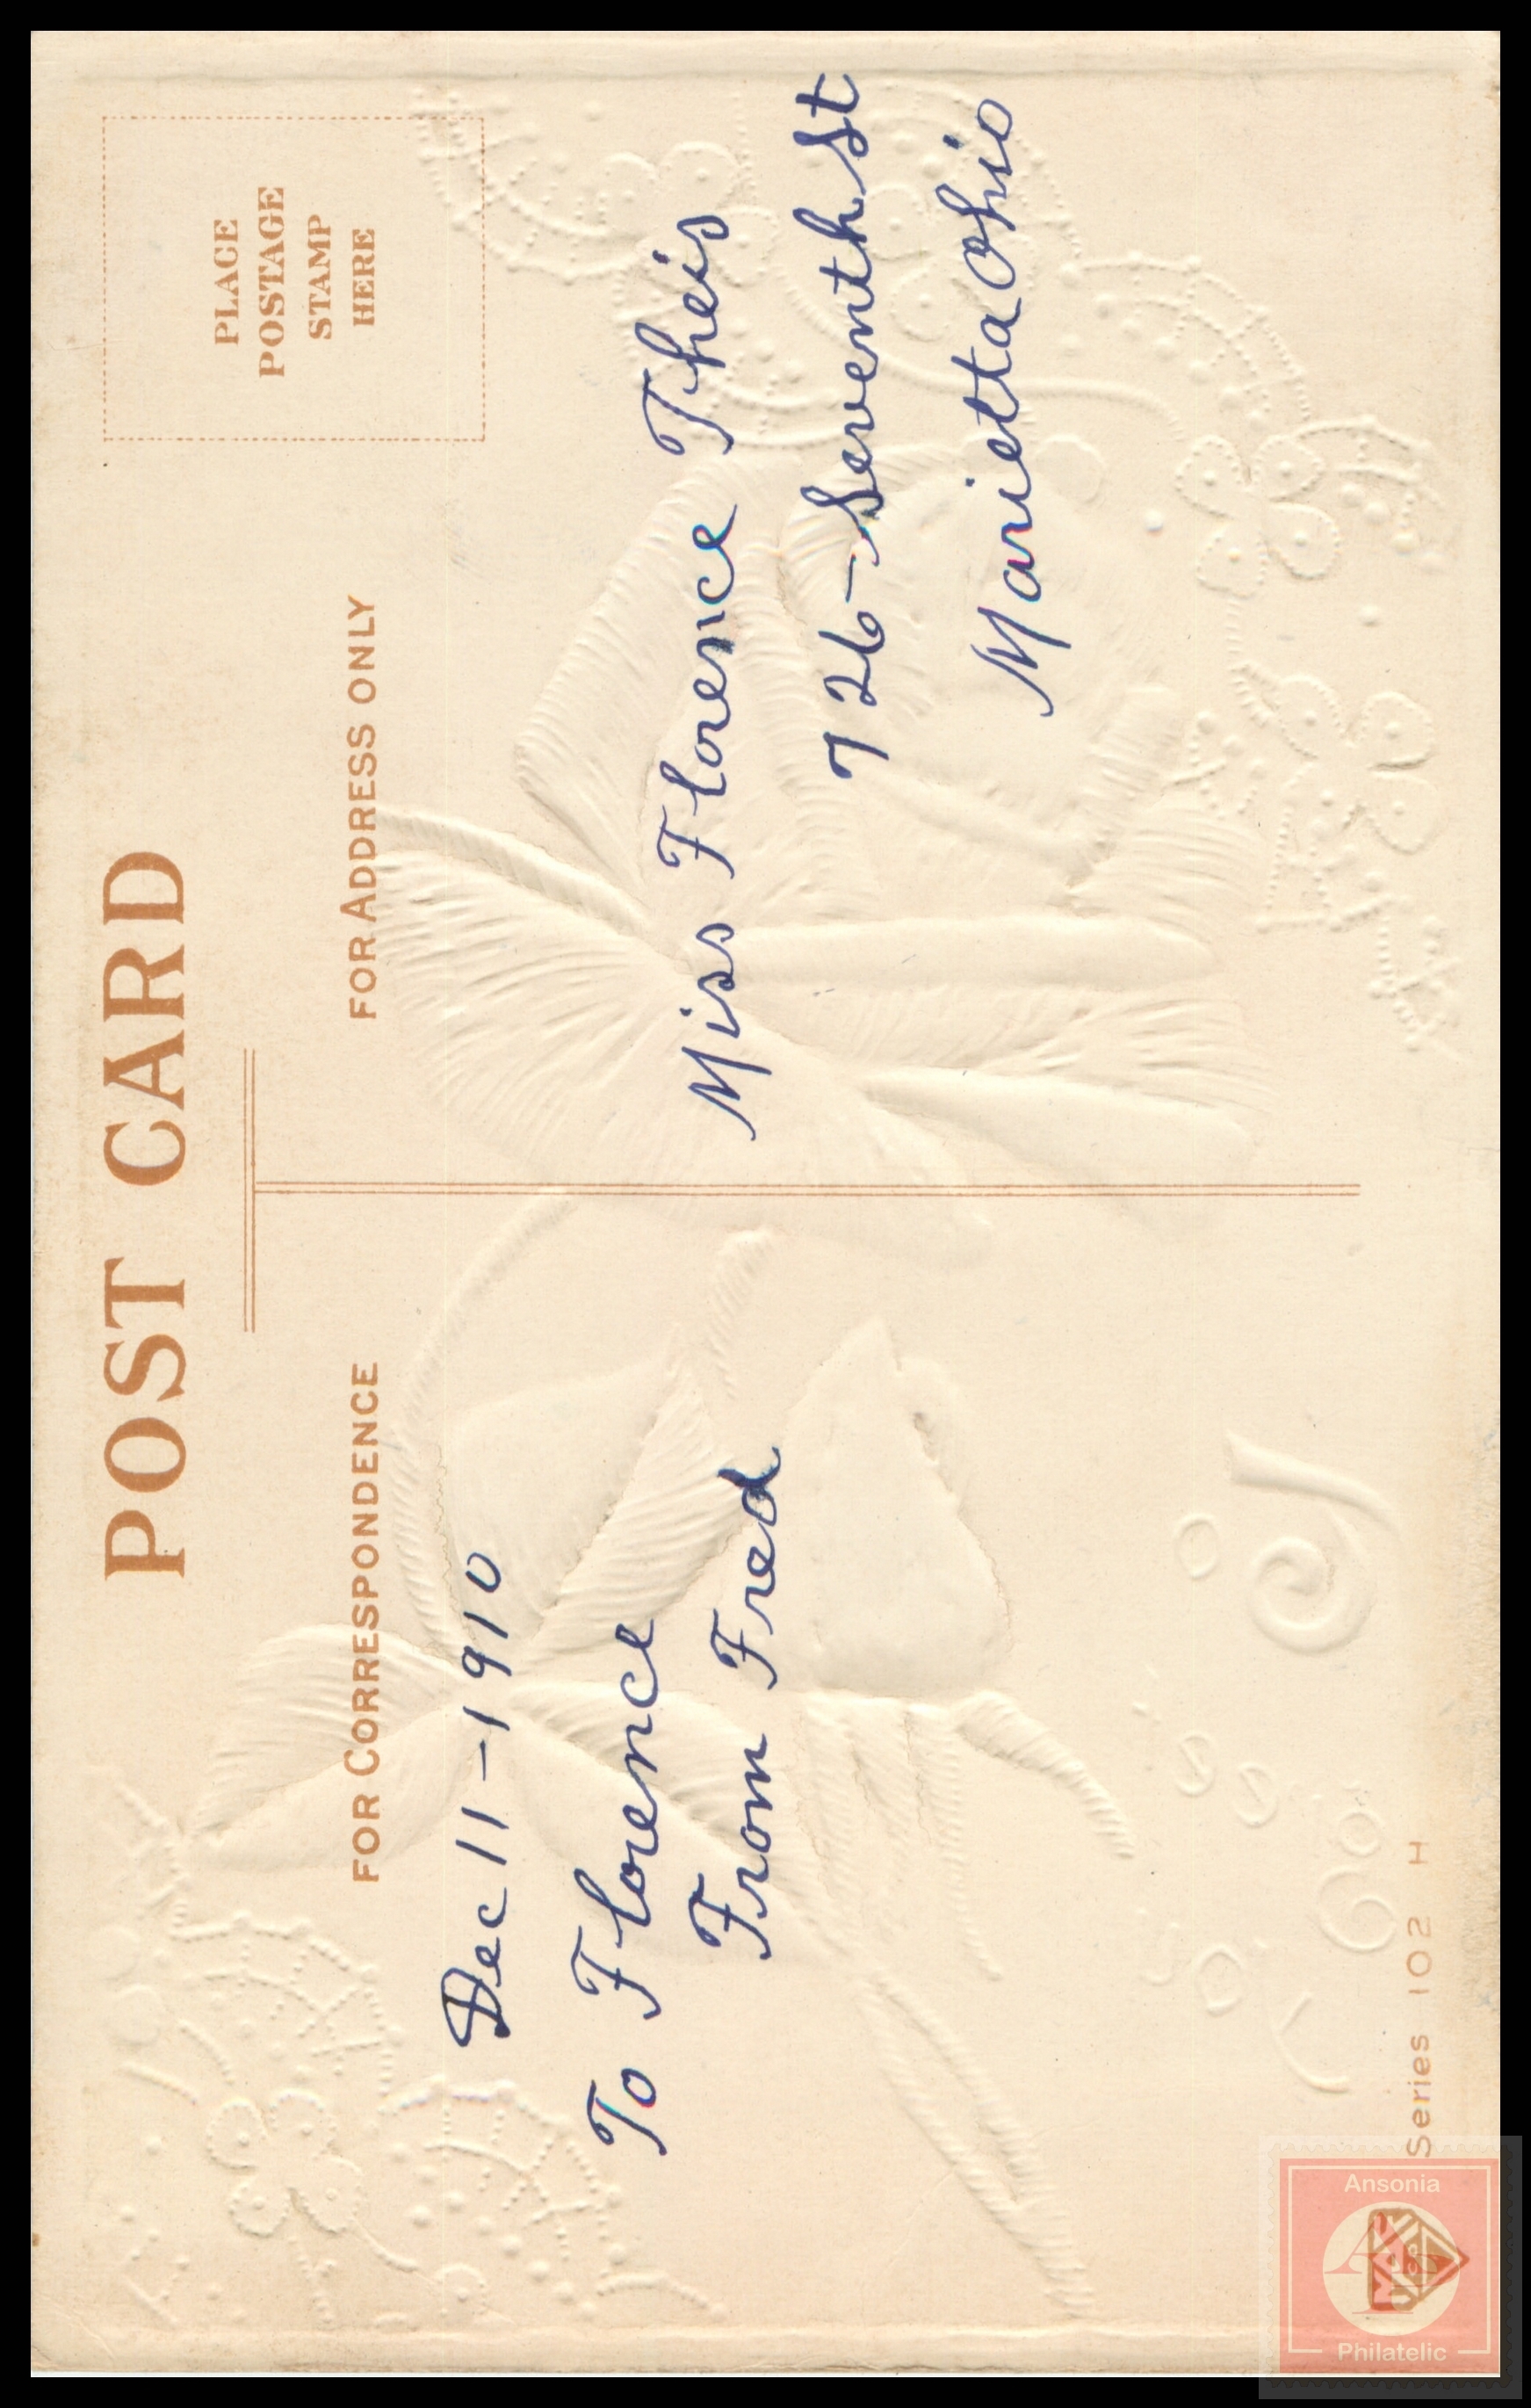 POST CARD
PLACE
POSTAGE
STAMP
HERE
FOR CORRESPONDENCE
FOR ADDRESS ONLY
Dec 11-1910
To Florence
From Fred
Miss Florence Theis
726-Seventh St
Marietta Ohio
Series 102 H
Ansonia
Philatelic